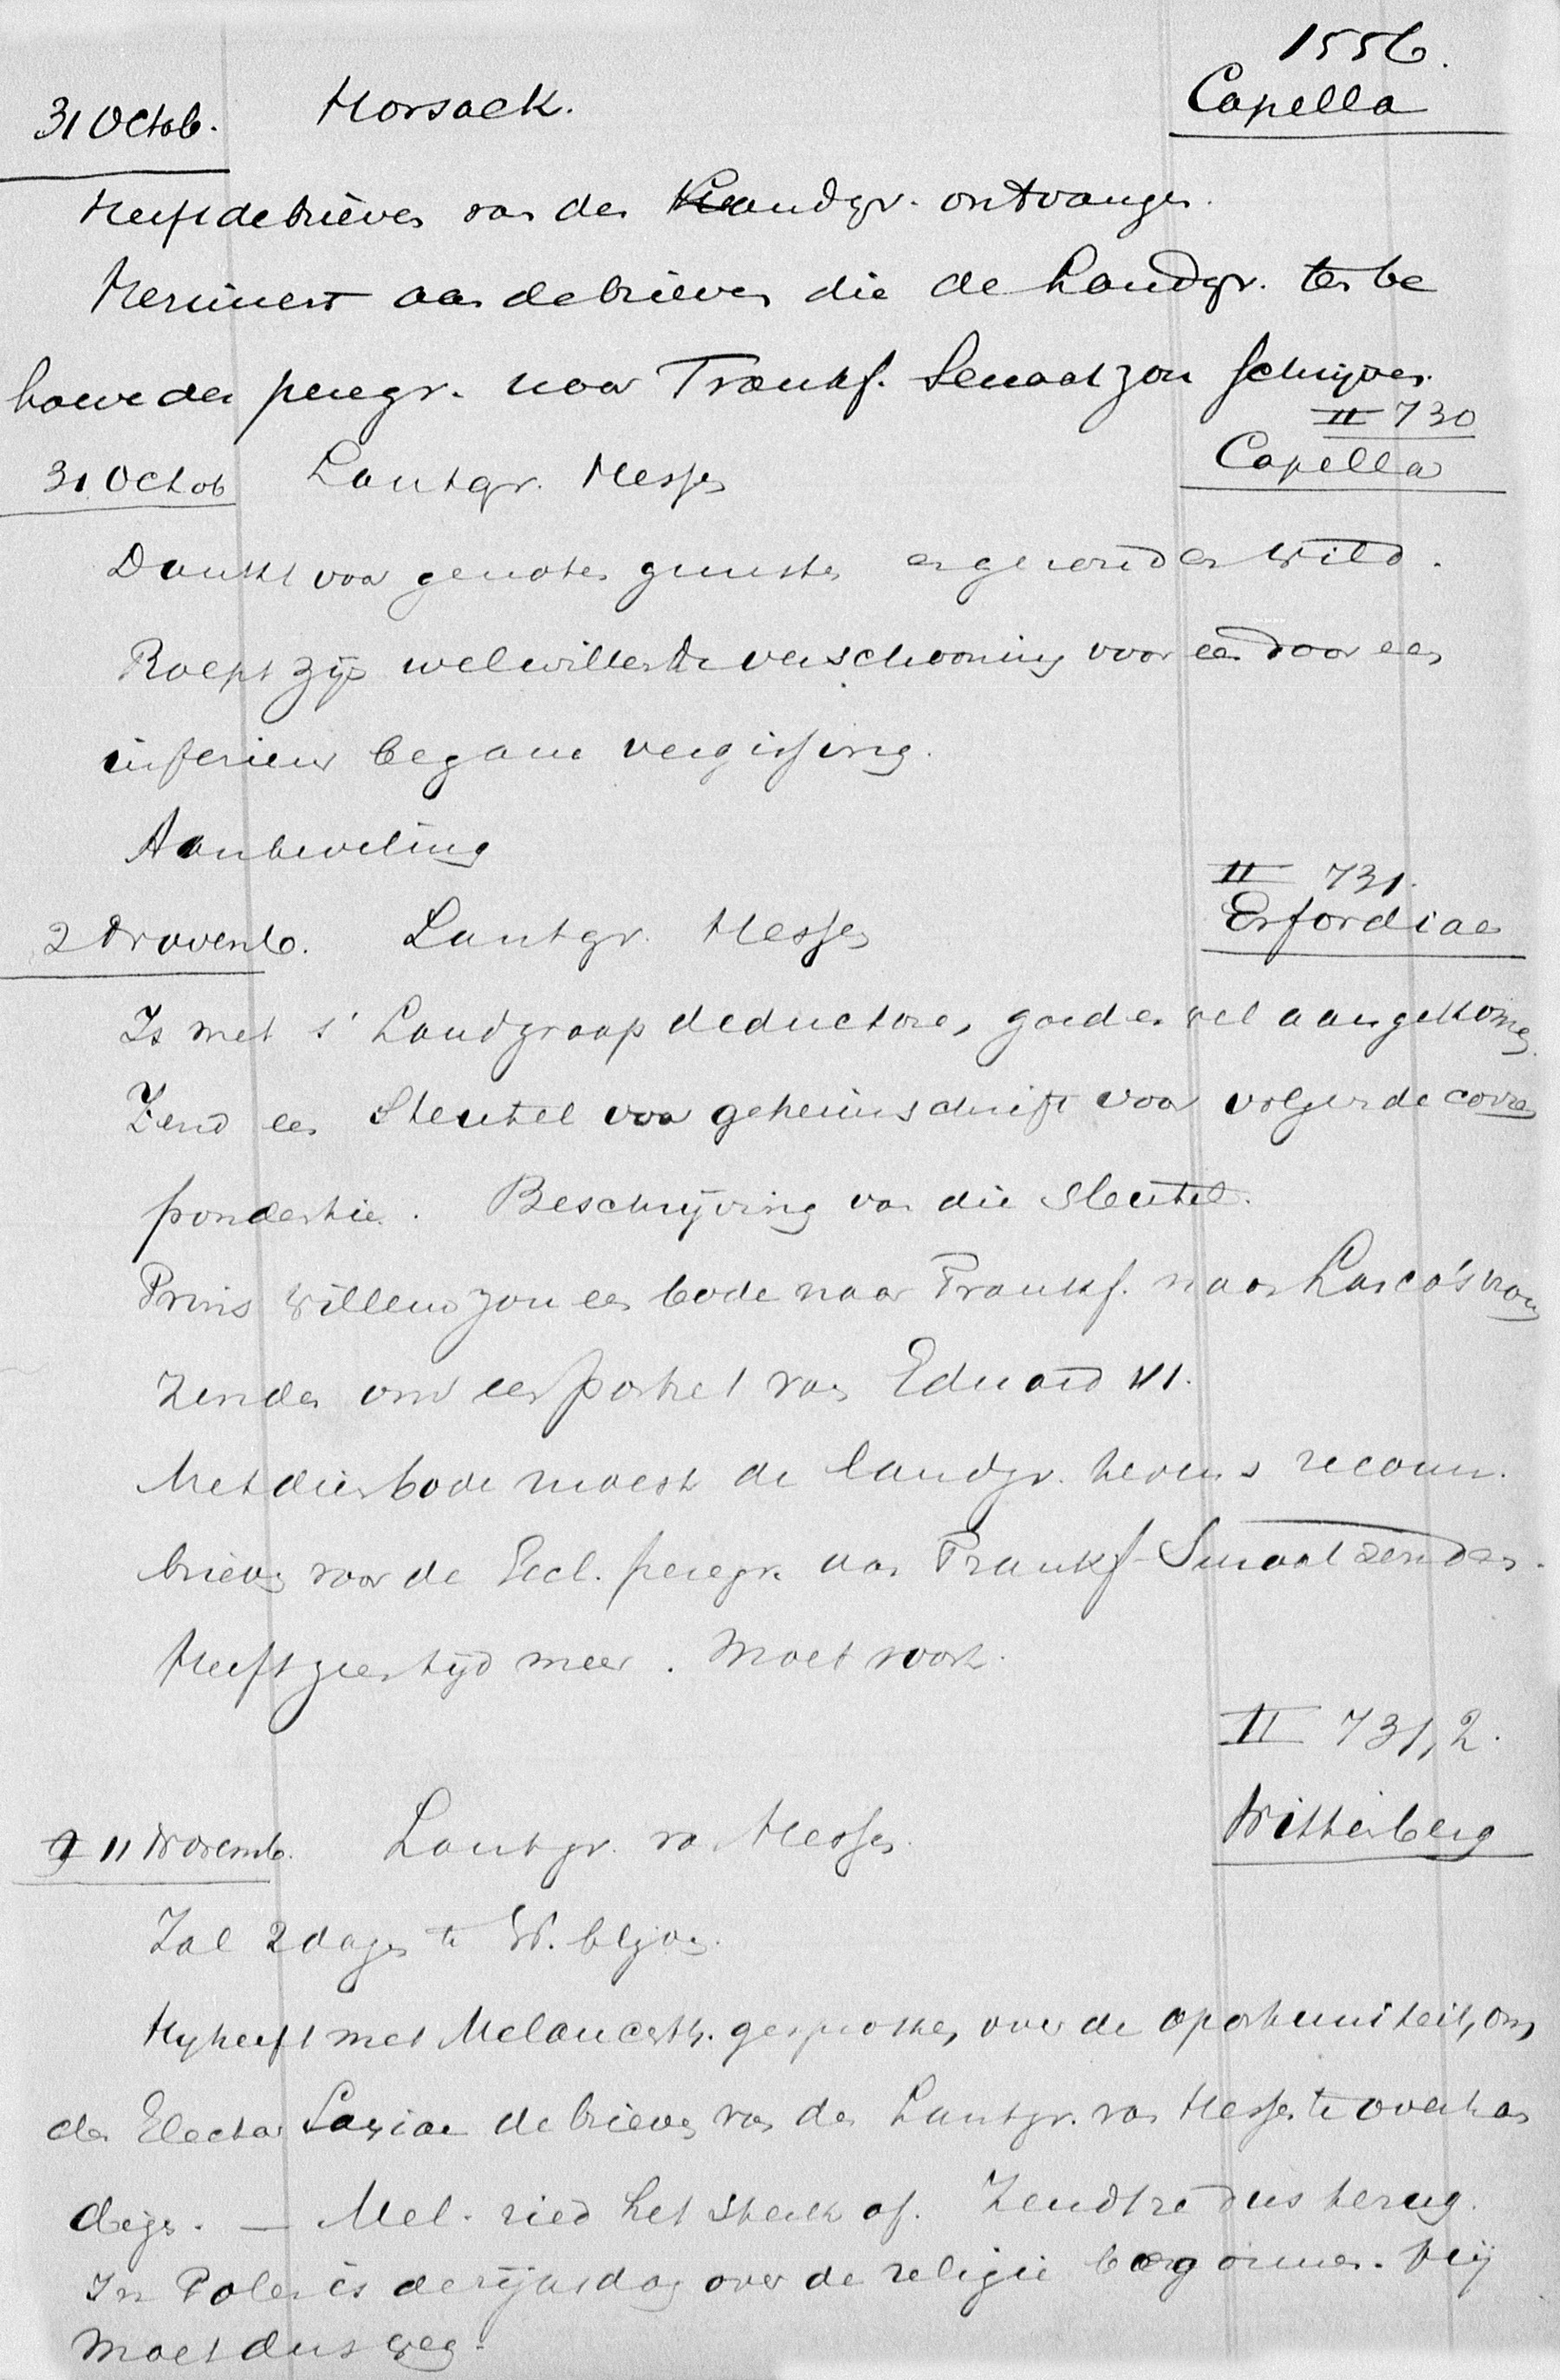 1556.
31 Octob. Horsack. Capella
Heeft de brieven van den Landgr. ontvangen.
Herinnert aan de brieven die de Landgr. ten be
hoeve der peregr. naar Frankf. Senaat zou schrijven.
II 730
31 Octob Lantgr. Hessen Capella
Dankt voor genoten gunsten en gezonden wild.
Roept zijn welwillende verschooning voor een door een
inferieur begane vergissing.
Aanbeveling
II 731.
2 Novemb. Lantgr. Hessen Erfordiae
Is met s' Landgraaf deductore, goed en wel aangekomen.
Zend een Sleutel voor geheimschrift voor volgende corres
pondentie. Beschrijving van die Sleutel.
Prins Willem zou een bode naar Frankf. naar Lasco's vrouw
zenden om een portret van Eduard VI.
Met dien bode moest de landgr. tevens recomm.
brieven voor de Eccl. peregr. aan Frankf. Senaat zenden.
Heeft geen tijd meer. Moet voort.
II 731,2.
11 Novemb. Lantgr. v. Hessen. Wittenberg
Zal 2 dagen te W. blijven.
Hij heeft met Melancth. gesproken, over de oportuniteit, om
den Elector Saxiae de brieven van den Lantgr. van Hessen te overhan
digen. — Mel. ried het sterk af. Zendt ze dus terug.
In Polen is de rijksdag over de religie begonnen. Hij
moet dus weg.